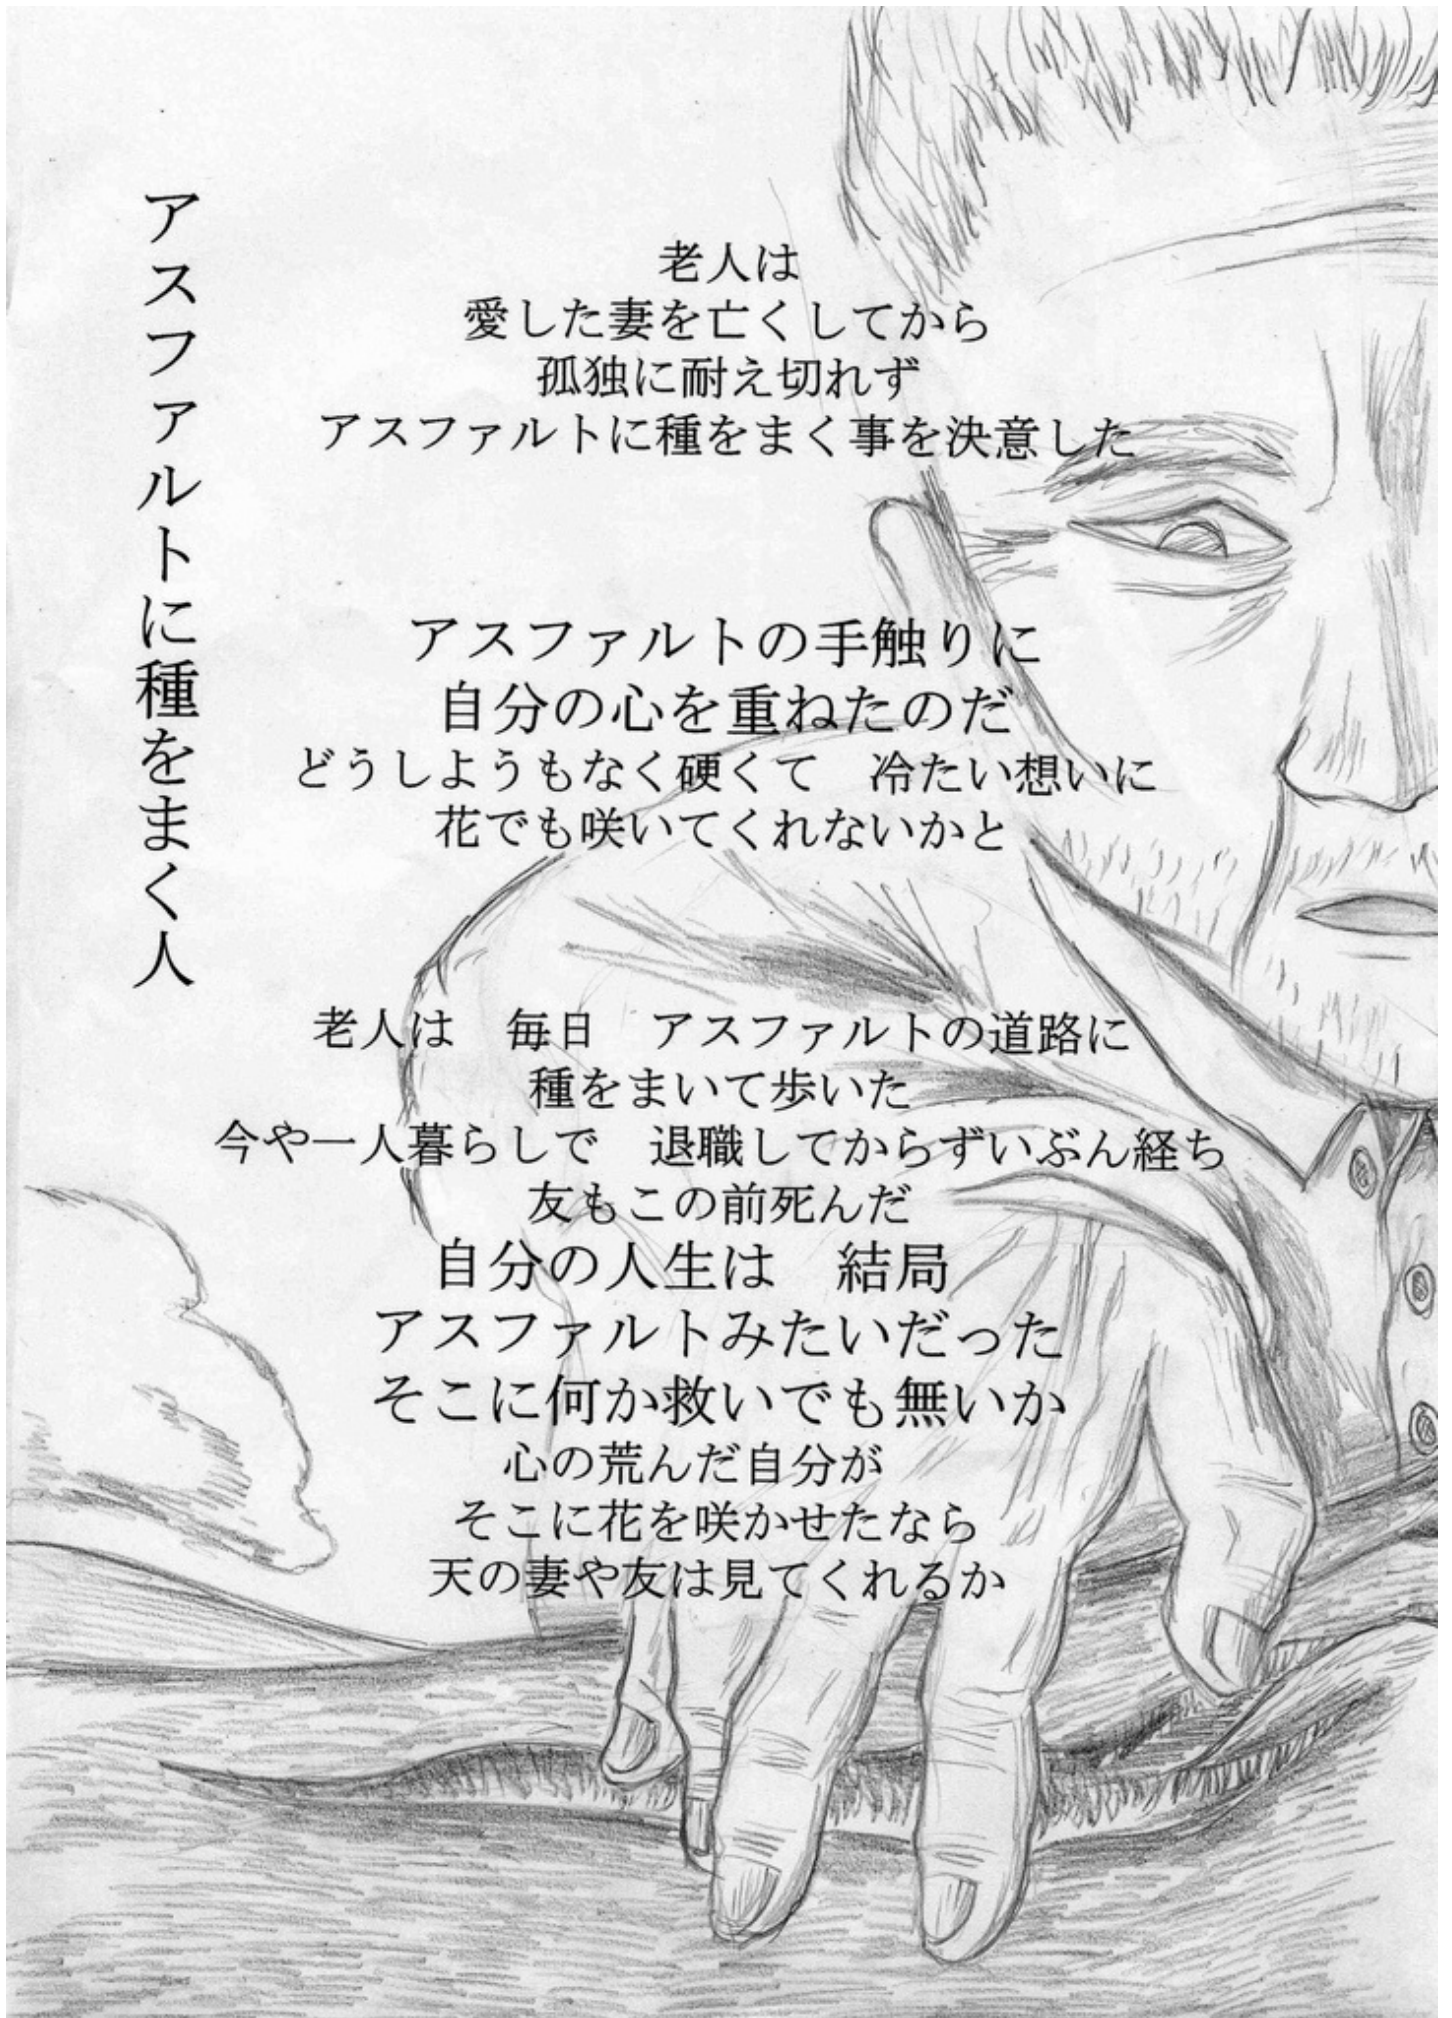 アスファルトに種をまく人
老人は
愛した妻を亡くしてから
孤独に耐え切れず
アスファルトに種をまく事を決意した
アスファルトの手触りに
自分の心を重ねたのだ
どうしようもなく硬くて　冷たい想いに
花でも咲いてくれないかと
老人は　毎日　アスファルトの道路に
種をまいて歩いた
今や一人暮らしで　退職してからずいぶん経ち
友もこの前死んだ
自分の人生は　結局
アスファルトみたいだった
そこに何か救いでも無いか
心の荒んだ自分が
そこに花を咲かせたなら
天の妻や友は見てくれるか